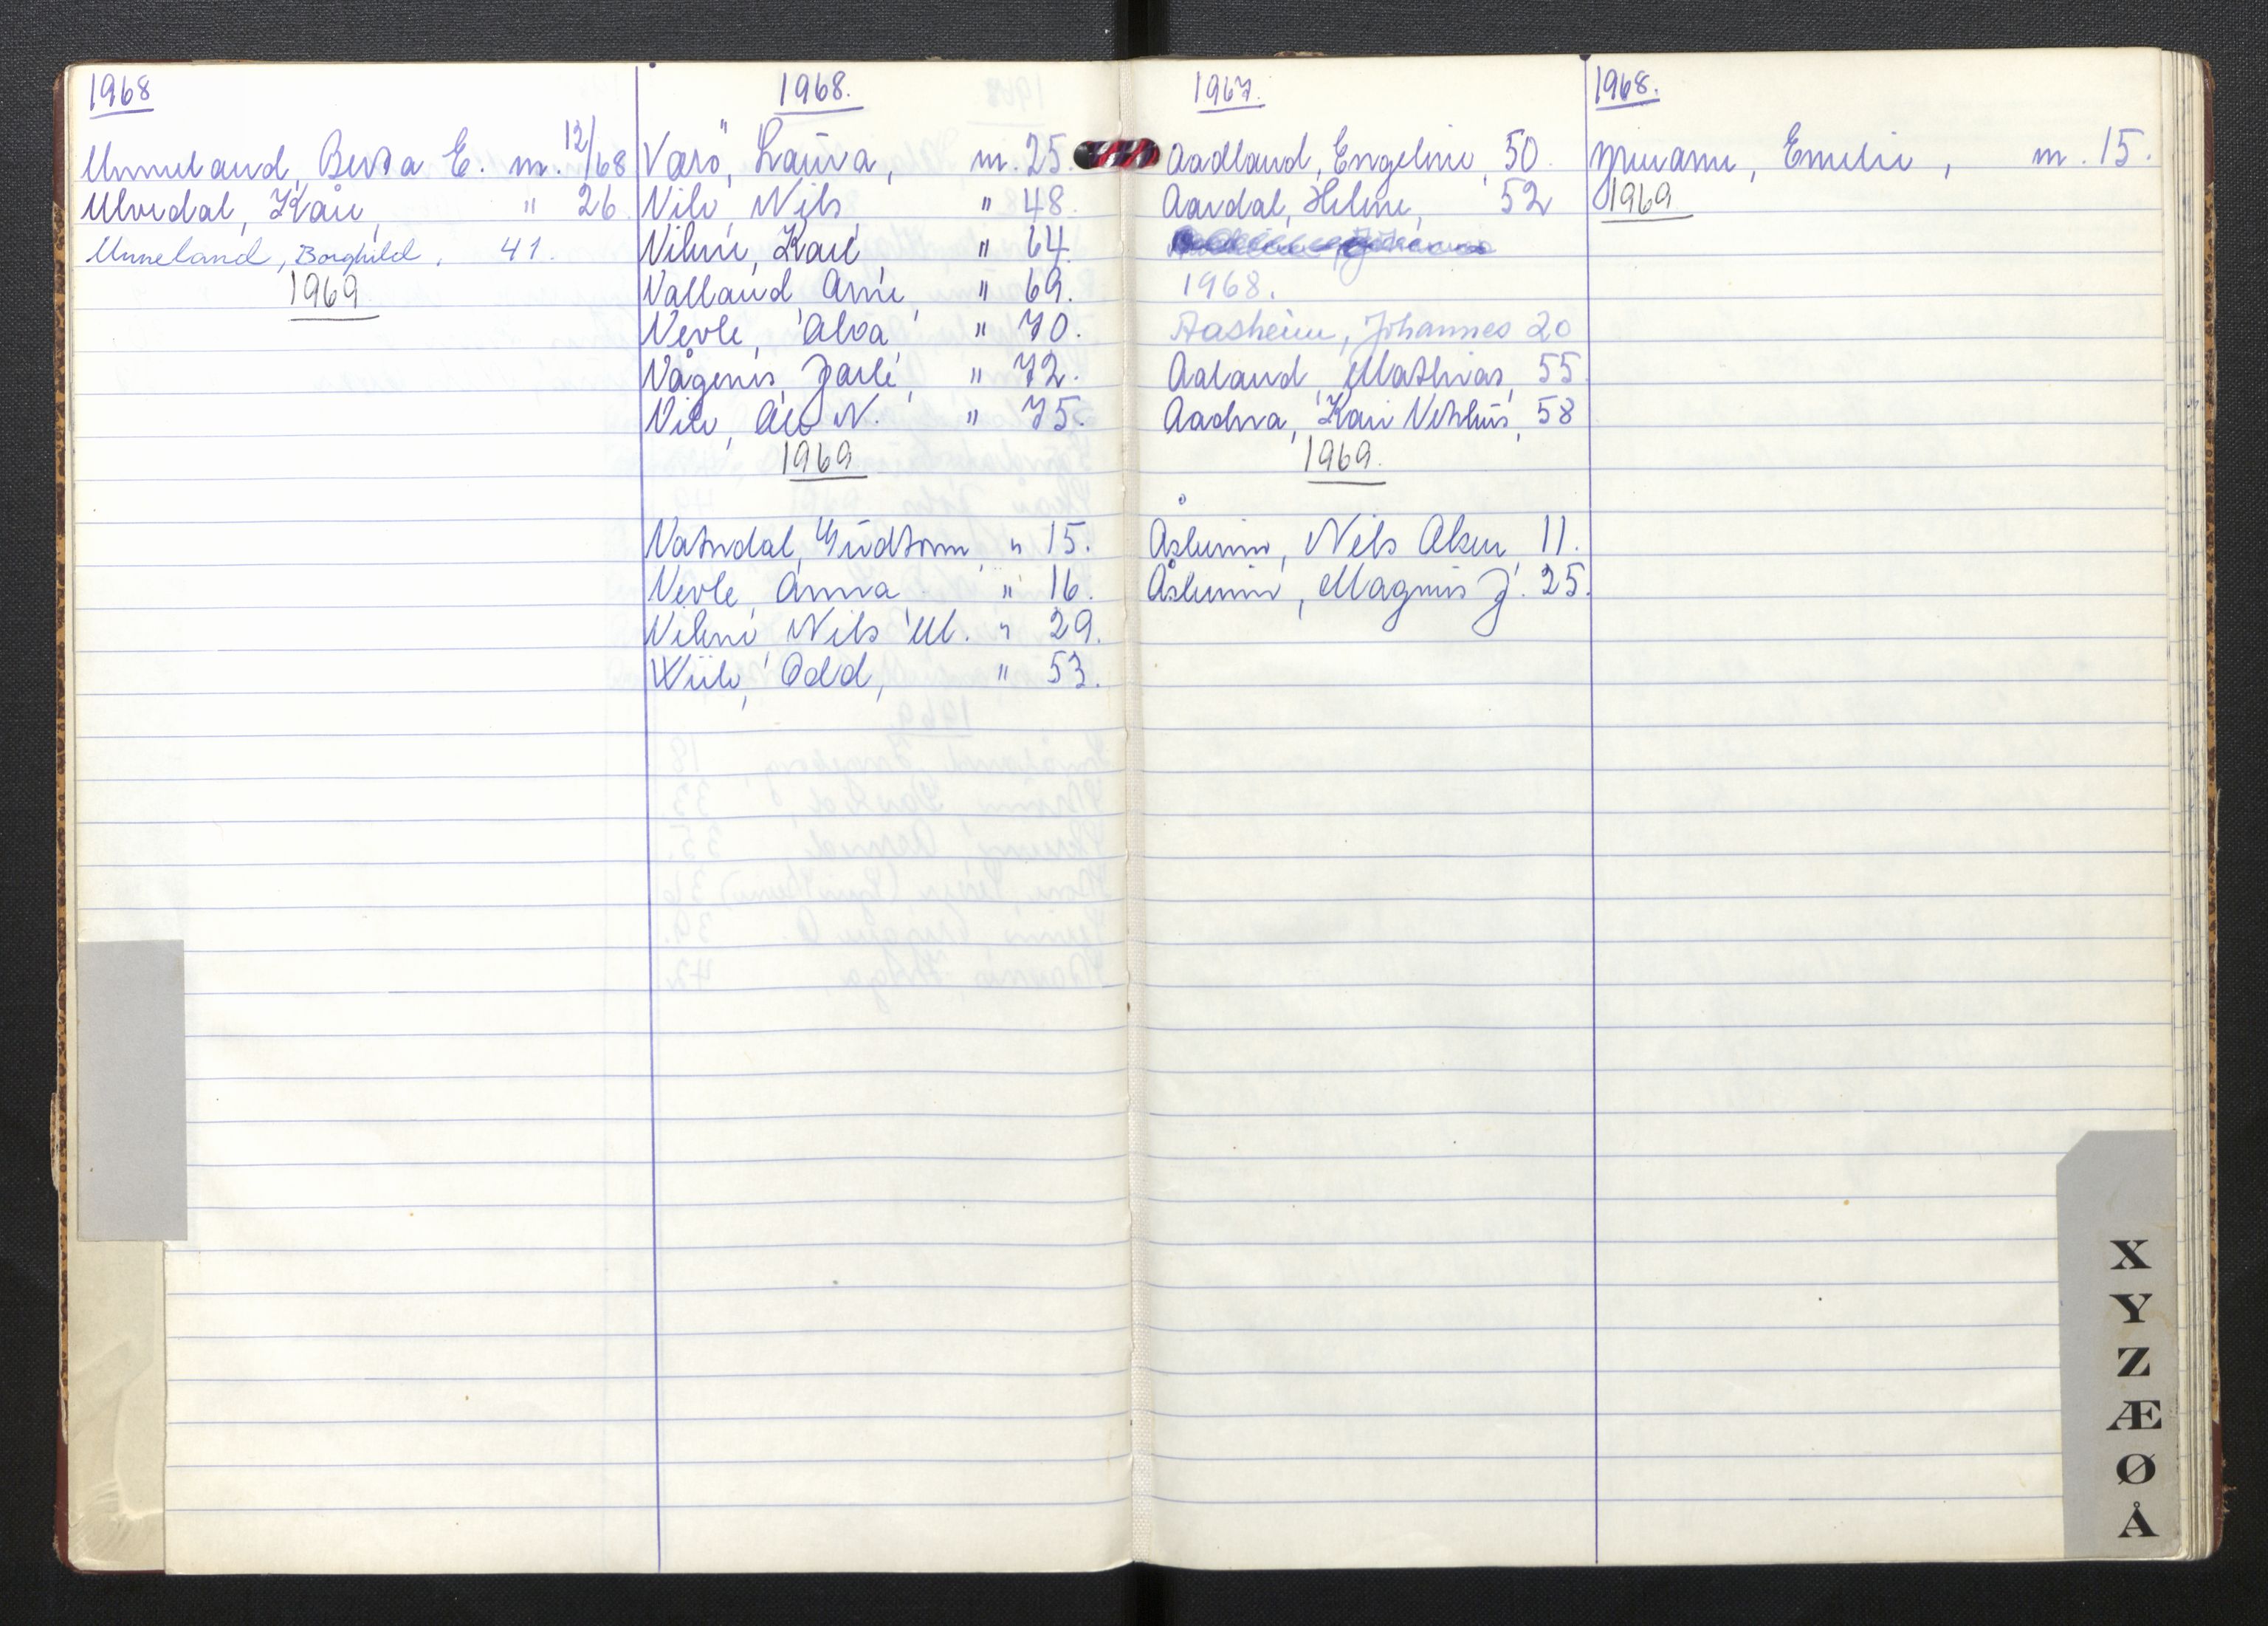 1968
Unneland, Berta E. m. 12/68
Ulvedal, Kåre, " 26.
Unneland, Borghild, 41.
1969
1968.
Værø, Laura, m. 25.
Vile, Nils, " 48.
Kari " 64.
Valland, Arne, " 69.
Nevle, Alva " 70.
Vågenes, Jarle, " 72.
N. " 75.
1969
Vatndal, Gudtorm, " 15.
Nevle, Anna " 16.
Nils M. " 29.
Wiik, Odd, " 53.
1967.
Aadland, Engeline, 50.
Aardal, Helene, 52
1968.
Aasheim, Johannes 20
Aaland, Mathias, 55.
Aadna, Kari 58
1969.
Nils 11.
Magnus J. 25.
1968.
Emelie, m. 15.
1969
X
Y
Z
Æ
Ø
Å